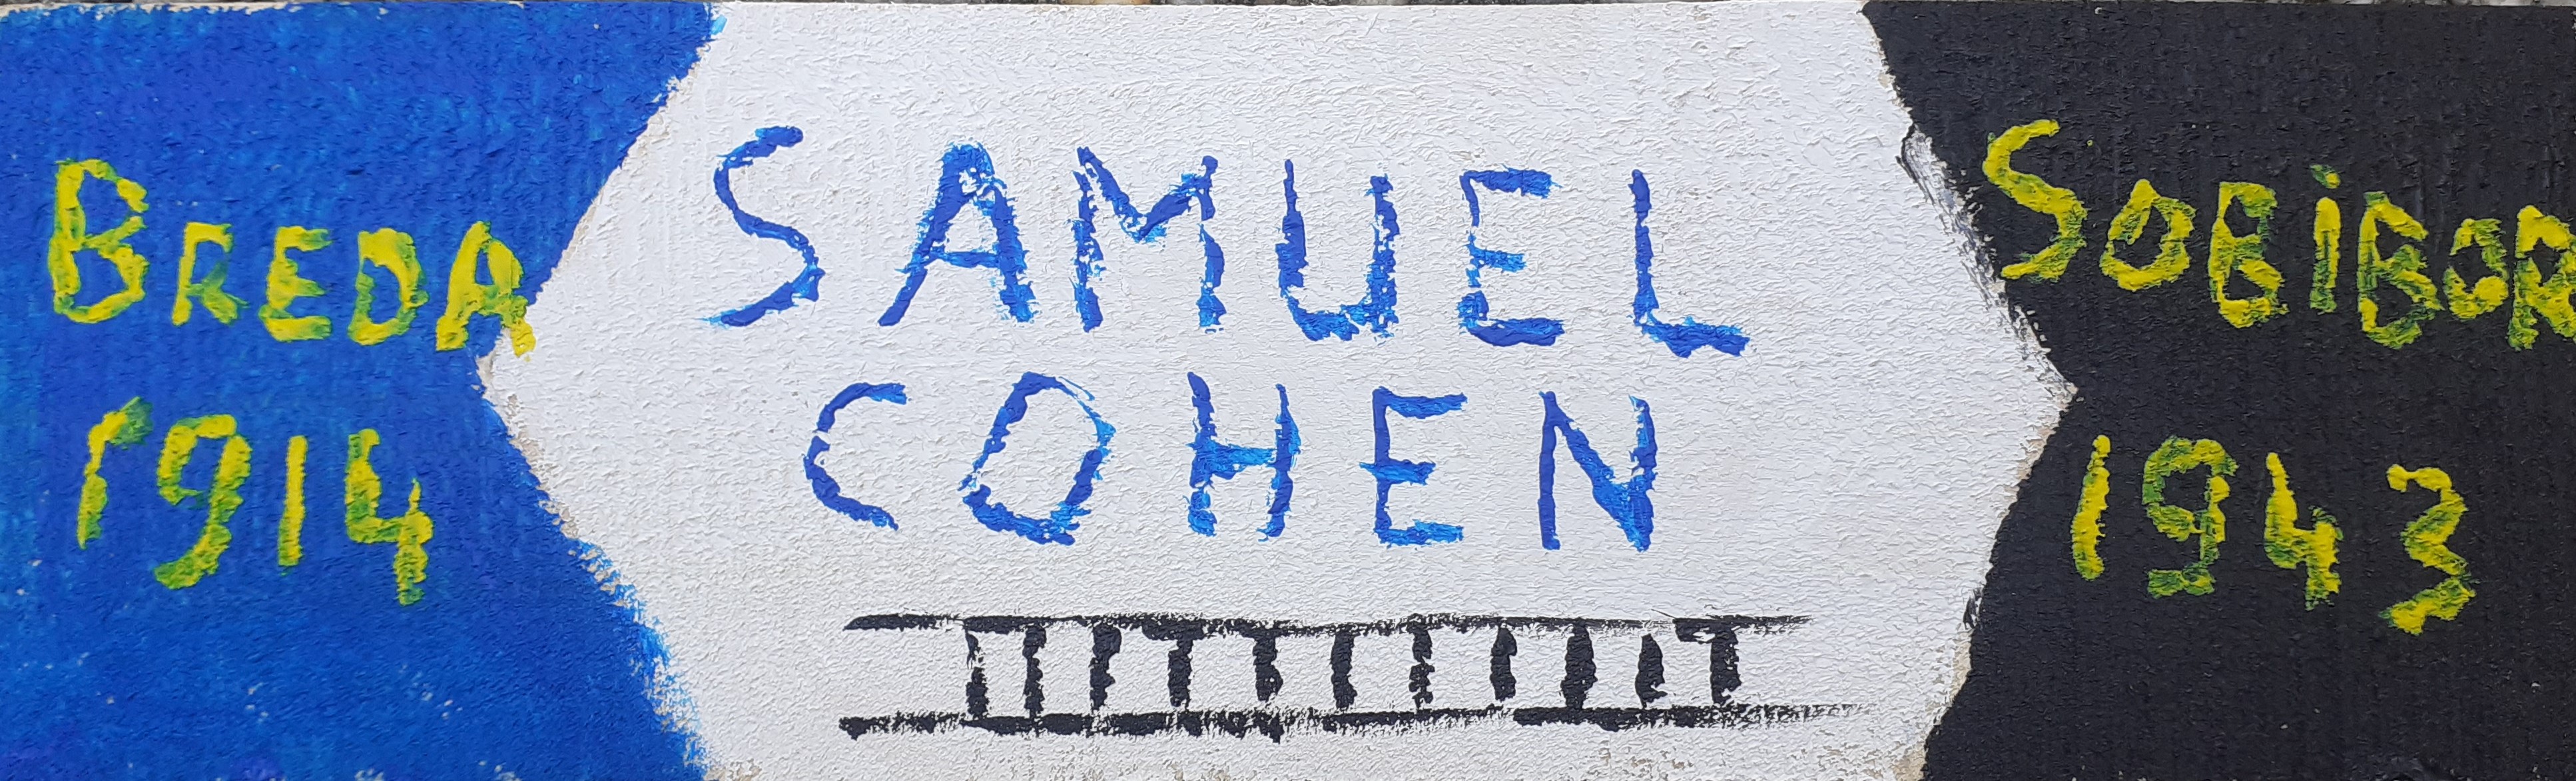 BREDA
1914
SAMUEL
COHEN
SOBiBOR
1943